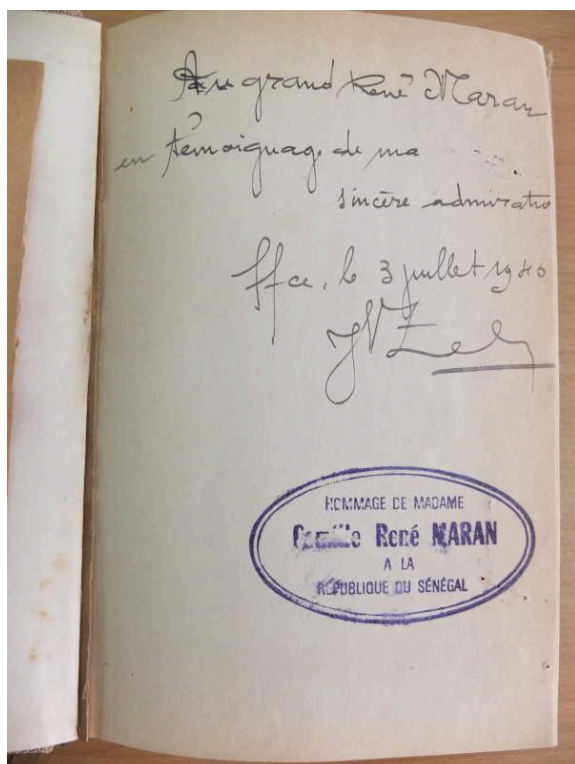 Au grand René Maran
en témoignage de ma
sincère admiratio
le 3 juillet 19
HOMMAGE DE MADAME
Camille René MARAN
A LA
RÉPUBLIQUE DU SÉNÉGAL